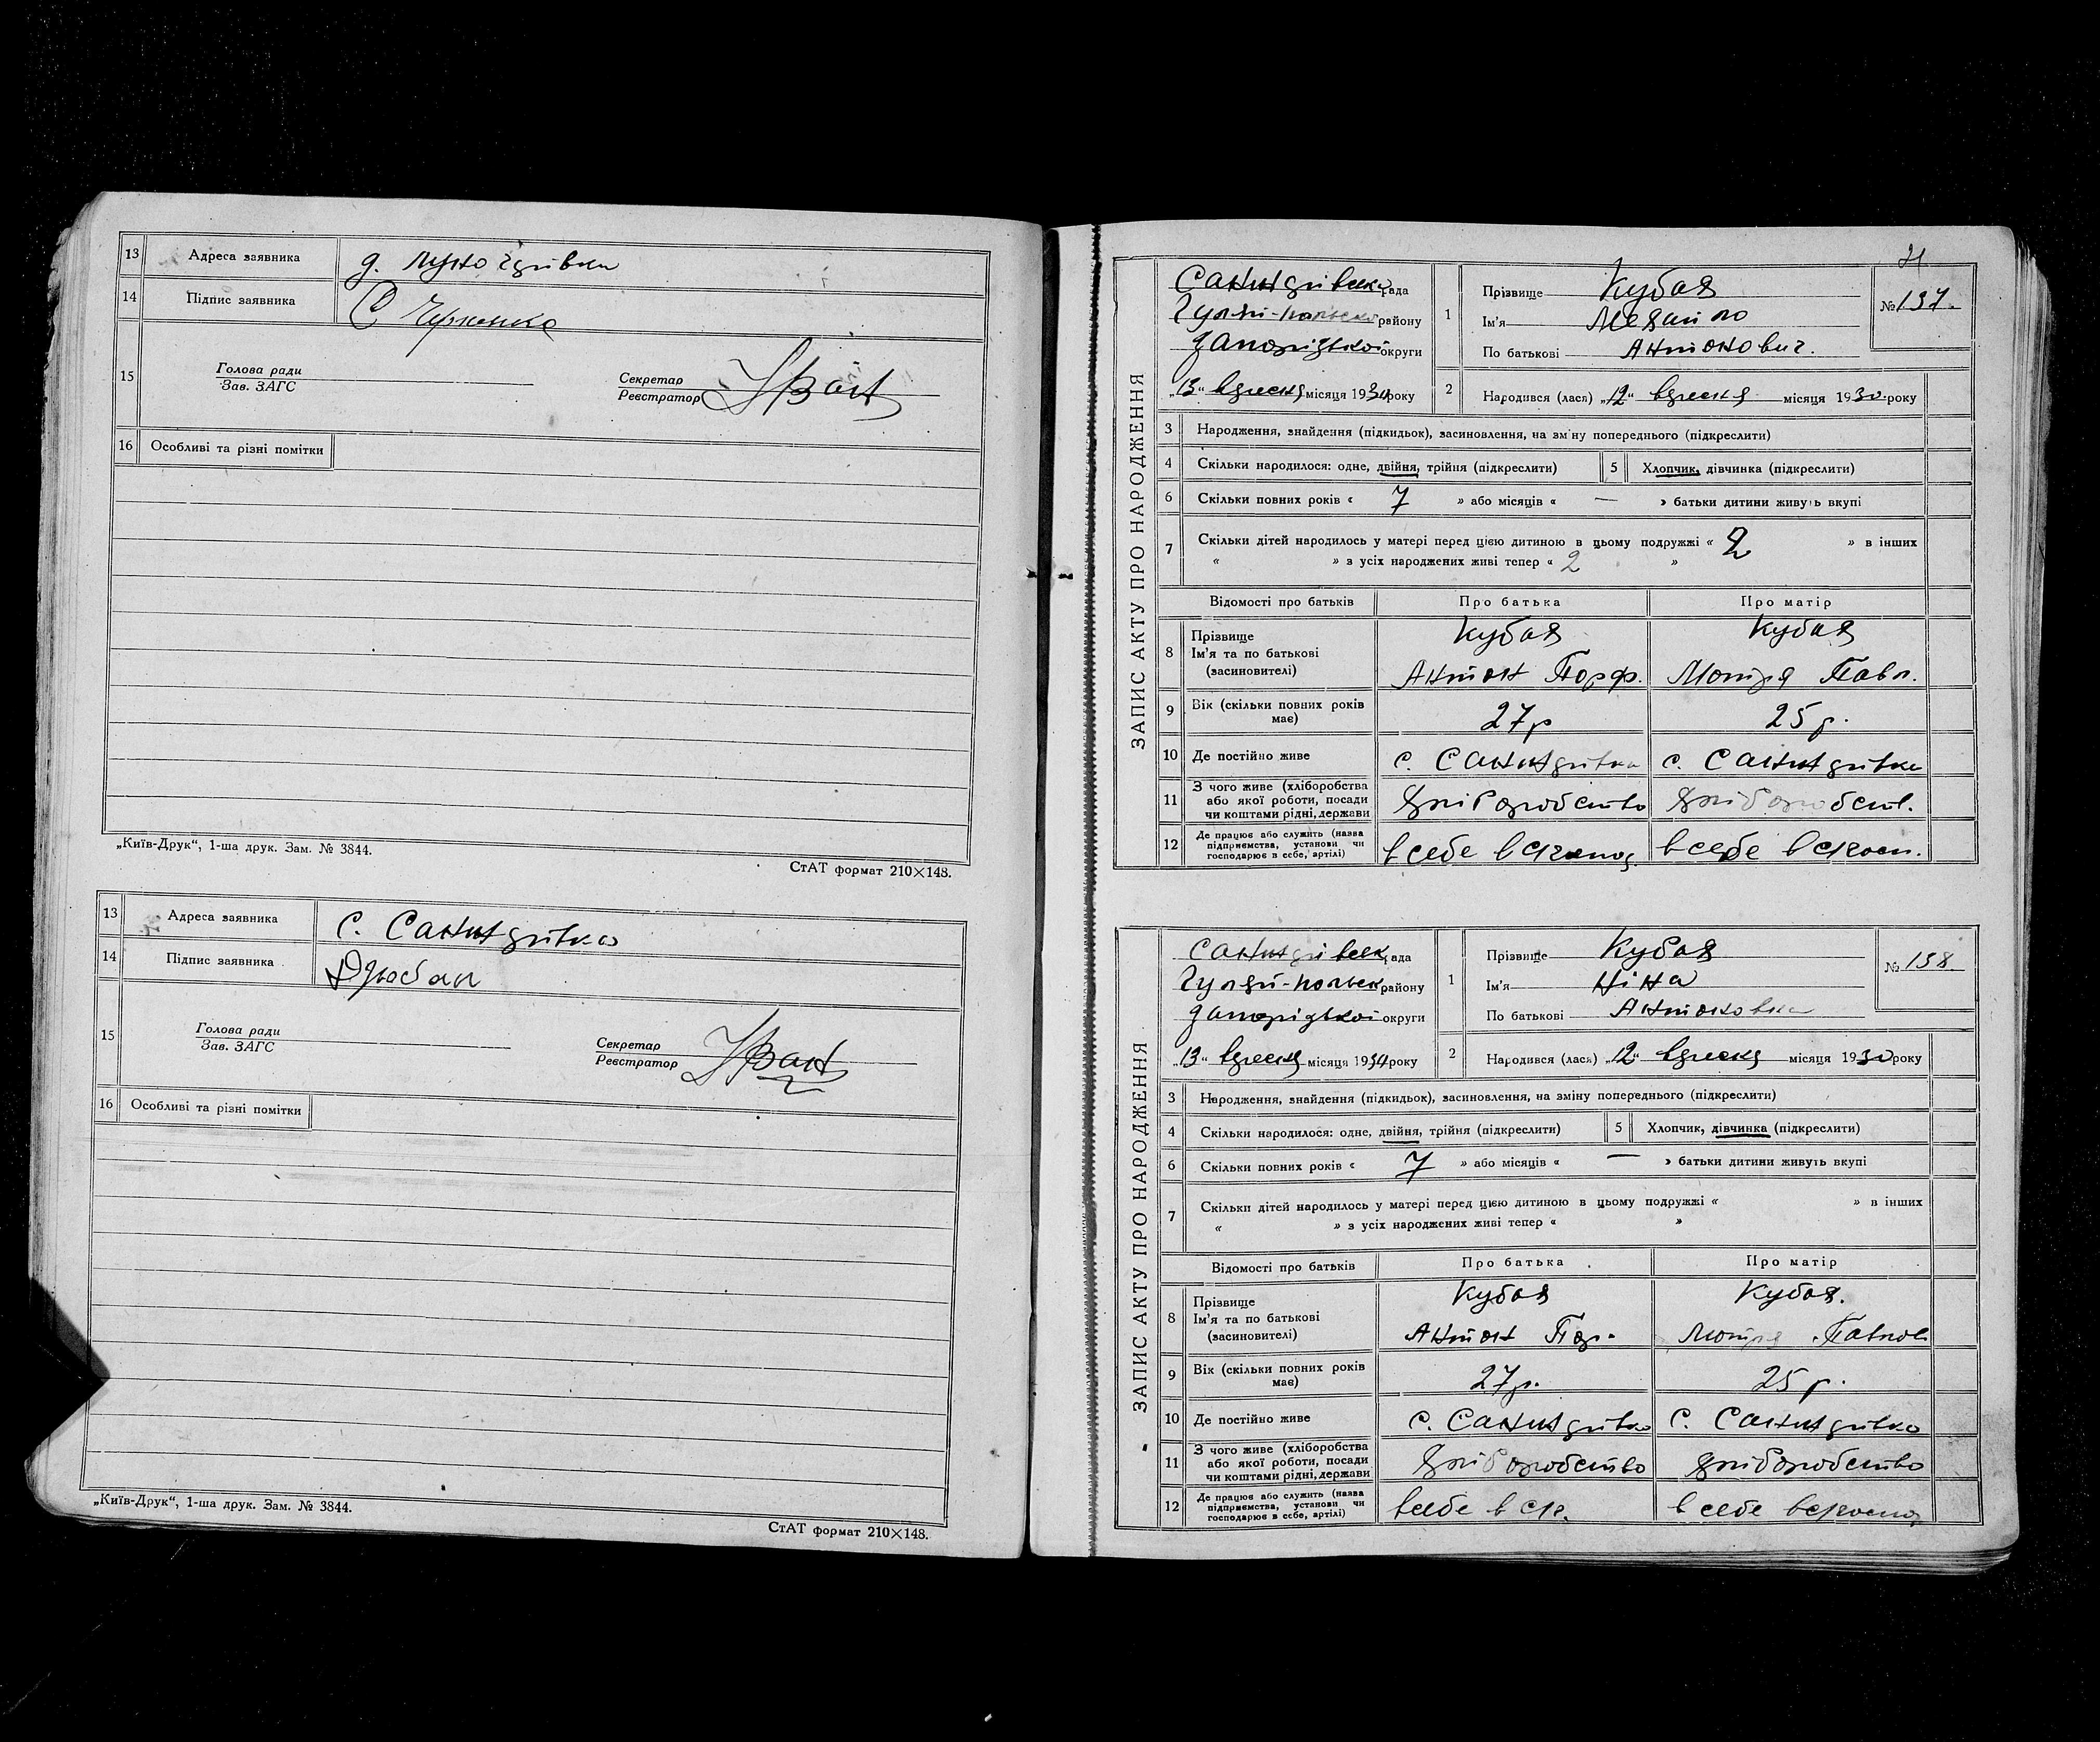 13 Адреса заявника
14 Підпис заявника
С Черненко
15 Голова ради
Зав. ЗАГС
Секретар
Реєстратор
16 Особливі та різні помітки
„Київ-Друк“, 1-ша друк. Зам. № 3844.
СтАТ формат 210×148.
13 Адреса заявника
14 Підпис заявника
15 Голова ради
Зав. ЗАГС
Секретар
Реєстратор
16 Особливі та різні помітки
„Київ-Друк“, 1-ша друк. Зам. № 3844.
СтАТ формат 210×148.
ЗАПИС АКТУ ПРО НАРОДЖЕННЯ
рада
району
Запорізької округи
„13“ вересня місяця 19 року
1 Прізвище Кубая
Ім'я
По батькові Антонович.
№ 137.
2 Народився (лася) „12“ вересня місяця 1930 року
3 Народження, знайдення (підкидьок), засиновлення, на зміну попереднього (підкреслити)
4 Скільки народилося: одне, двійня, трійня (підкреслити)
5 Хлопчик, дівчинка (підкреслити)
6 Скільки повних років « 7 » або місяців « — » батьки дитини живуть вкупі
7 Скільки дітей народилось у матері перед цією дитиною в цьому подружжі « 2 » в інших
« » з усіх народжених живі тепер « 2 »
Відомості про батьків Про батька Про матір
8 Прізвище Кубая Кубая
Ім'я та по батькові
(засиновителі) Антон Порф. Мотря Павл.
9 Вік (скільки повних років має) 27р 25 р.
10 Де постійно живе с. с.
11 З чого живе (хліборобства
або якої роботи, посади
чи коштами рідні, держави хліборобство хліборобств.
12 Де працює або служить (назва
підприємства, установи чи
господарює в себе, артілі) в себе в в себе в
ЗАПИС АКТУ ПРО НАРОДЖЕННЯ
рада
району
Запорізької округи
„13“ вересня місяця 19 року
1 Прізвище Кубая
Ім'я Ніна
По батькові Антоновна
№ 138.
2 Народився (лася) „12“ вересня місяця 1930 року
3 Народження, знайдення (підкидьок), засиновлення, на зміну попереднього (підкреслити)
4 Скільки народилося: одне, двійня, трійня (підкреслити)
5 Хлопчик, дівчинка (підкреслити)
6 Скільки повних років « 7 » або місяців « — » батьки дитини живуть вкупі
7 Скільки дітей народилось у матері перед цією дитиною в цьому подружжі « » в інших
« » з усіх народжених живі тепер « »
Відомості про батьків Про батька Про матір
8 Прізвище Кубая Кубая.
Ім'я та по батькові
(засиновителі) Антон Пор. Мотря Павлов
9 Вік (скільки повних років має) 27р. 25 р.
10 Де постійно живе с. с.
11 З чого живе (хліборобства
або якої роботи, посади
чи коштами рідні, держави хліборобство хліборобство
12 Де працює або служить (назва
підприємства, установи чи
господарює в себе, артілі) в себе в в себе в